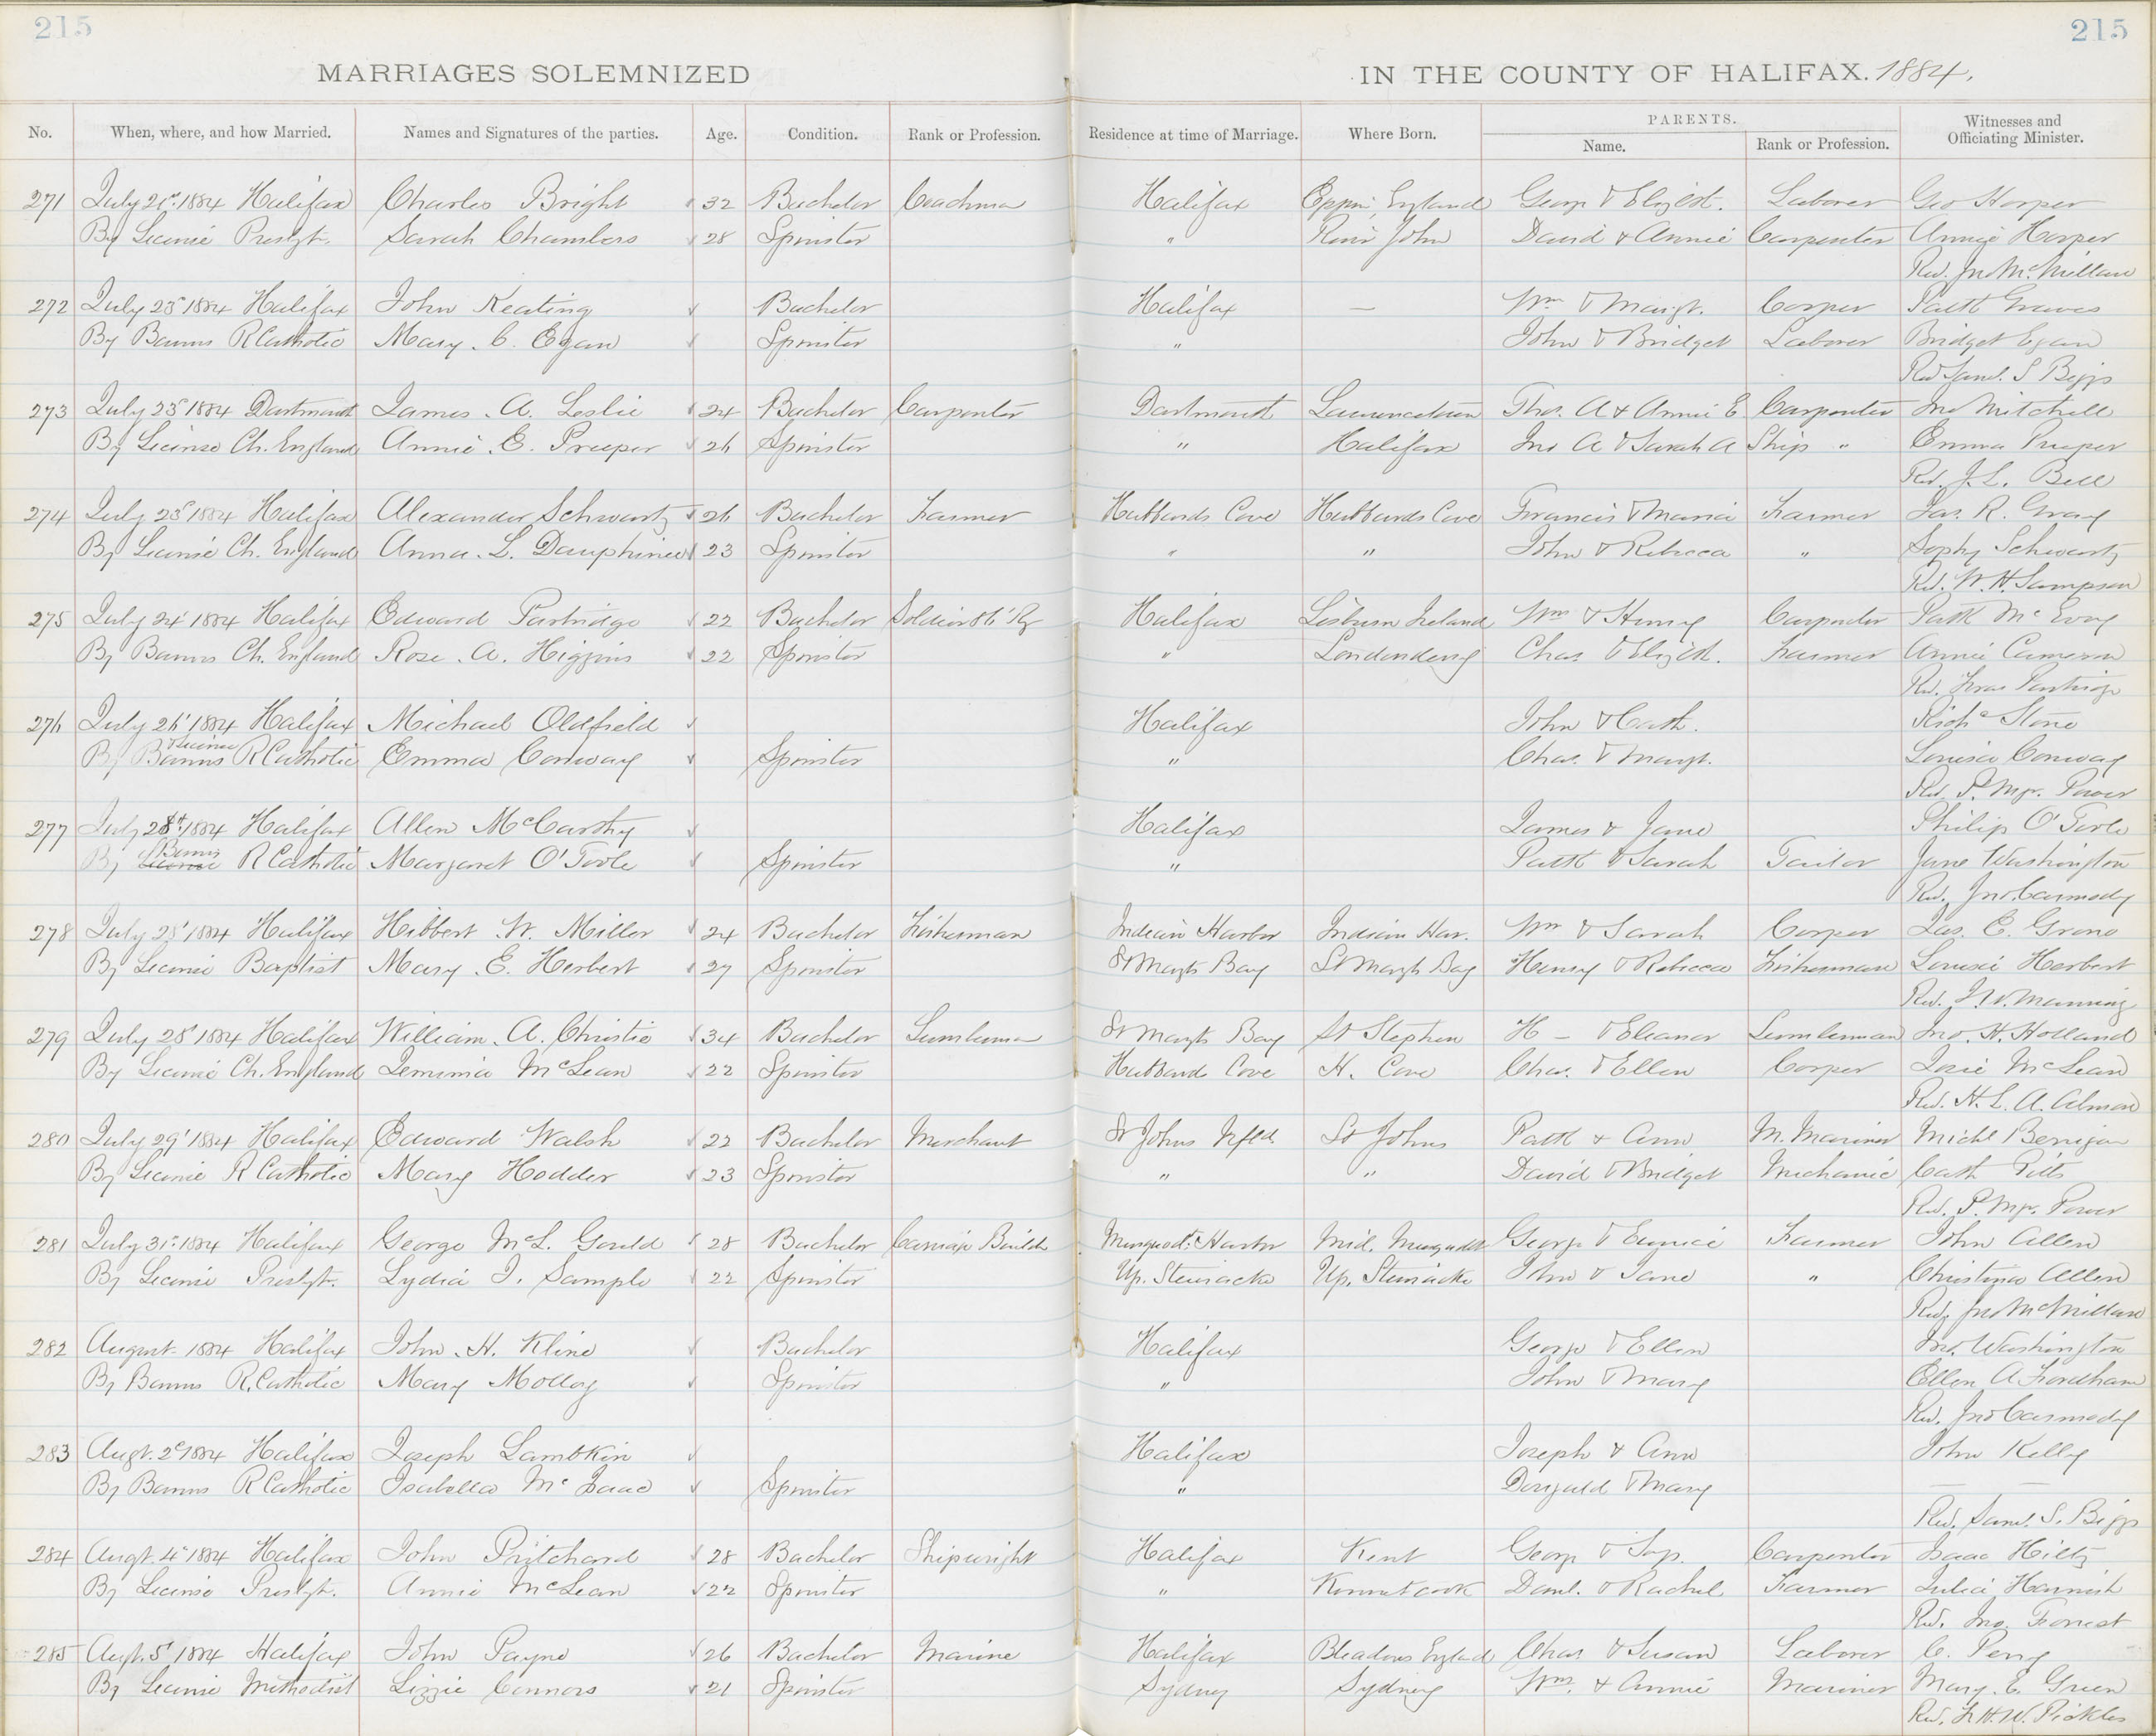 215
215
MARRIAGES SOLEMNIZED IN THE COUNTY OF HALIFAX. 1884.
No. When, where, and how Married. Names and Signatures of the parties. Age. Condition. Rank or Profession. Residence at time of Marriage. Where Born. PARENTS. Witnesses and Officiating Minister.
Name. Rank or Profession.
271 July 21st 1884 Halifax Charles Bright 32 Bachelor Coachman Halifax England George & Elizbt. Laborer Geo Harper
By License Presbyt. Sarah Chambers 28 Spinster " River John David & Annie Carpenter Annie Harper
Rev. Jno McMillan
272 July 23d 1884 Halifax John Keating Bachelor Halifax — Wm & Margt. Cooper Patk Graves
By Banns R Catholic Mary C. Egan Spinster " John & Bridget Laborer Bridget Egan
Rev Saml. S Biggs
273 July 23d 1884 Dartmouth James A. Leslie 24 Bachelor Carpenter Dartmouth Lawrencetown Thos. A & Annie E Carpenter Jno Mitchell
By License Ch. England Annie E. Preeper 26 Spinster " Halifax Jno A & Sarah A Ship " Emma Preeper
Rev. J. L. Bell
274 July 23d 1884 Halifax Alexander Schwartz 26 Bachelor Farmer Hubbards Cove Hubbards Cove Francis & Maria Farmer Jas. R. Gray
By License Ch. England Anna L. Dauphinee 23 Spinster " " John & Rebecca " Sophy Schwartz
Rev. W. H. Sampson
275 July 24' 1884 Halifax Edward Partridge 22 Bachelor Soldier Rg Halifax Lisburn Ireland Wm & Carpenter Patk McEvoy
By Banns Ch. England Rose A. Higgins 22 Spinster " Londonderry Chas. & Elizbt. Farmer Annie Cameron
Rev. Fras Partridge
276 July 26' 1884 Halifax Michael Oldfield Halifax John & Cath. Richd Stone
By Banns & License R Catholic Emma Conway Spinster " Chas. & Margt. Louisa Conway
Rev. P. Mgr. Power
277 July 28th 1884 Halifax Allen McCarthy Halifax James & Jane Philip O'Toole
By License Banns R Catholic Margaret O'Toole Spinster " Patk & Sarah Tailor Jane Washington
Rev. Jno. Carmody
278 July 28' 1884 Halifax Hibbert W. Miller 24 Bachelor Fisherman Indian Harbor Indian Har. Wm & Sarah Cooper Jas. E.
By License Baptist Mary E. Herbert 27 Spinster St Margts Bay St Margts Bay Henry & Rebecca Fisherman Louise Herbert
Rev. J. W. Manning
279 July 28' 1884 Halifax William A. Christie 34 Bachelor Lumberman St Margts Bay St Stephen H — & Eleanor Lumberman Jno. H. Holland
By License Ch. England Jemima McLean 22 Spinster Hubbards Cove H. Cove Chas. & Ellen Cooper Josie McLean
Rev. H. L. A. Almon
280 July 29' 1884 Halifax Edward Walsh 22 Bachelor Merchant St Johns Nfld. St Johns Patk & Ann M. Mariner Michl Berrigan
By License R Catholic Mary Hodder 23 Spinster " " David & Bridget Mechanic Cath Pitts
Rev. P. Mgr. Power
281 July 31st 1884 Halifax George McL. Gould 28 Bachelor Carriage Builder Musquodt. Harbor Mid. Musquodt George & Eunice Farmer John Allen
By License Presbyt. Lydia J. Sample 22 Spinster Up. Stewiacke Up. Stewiacke John & Jane " Christina Allen
Rev. Jno McMillan
282 August 1884 Halifax John H. Kline Bachelor Halifax George & Ellen Jno. Washington
By Banns R. Catholic Mary Molloy Spinster " John & Mary Ellen A Fordham
Rev. Jno Carmody
283 Augt. 2d 1884 Halifax Joseph Lambkin Halifax Joseph & Ann John Kelly
By Banns R Catholic Isabella McIsaac Spinster " Dougald & Mary —
Rev. Saml. S. Biggs
284 Augt. 4' 1884 Halifax John Pritchard 28 Bachelor Shipwright Halifax Kent George & Carpenter Isaac Hiltz
By License Presbyt. Annie McLean 22 Spinster " Kennetcook Danl. & Rachel Farmer Julia Harnish
Rev. Jno. Forrest
285 Augt. 5' 1884 Halifax John Payne 26 Bachelor Marine Halifax England Chas. & Susan Laborer C. Perry
By License Methodist Lizzie Connors 21 Spinster Sydney Sydney Wm. & Annie Mariner Mary E. Green
Rev. F. H. W. Pickles